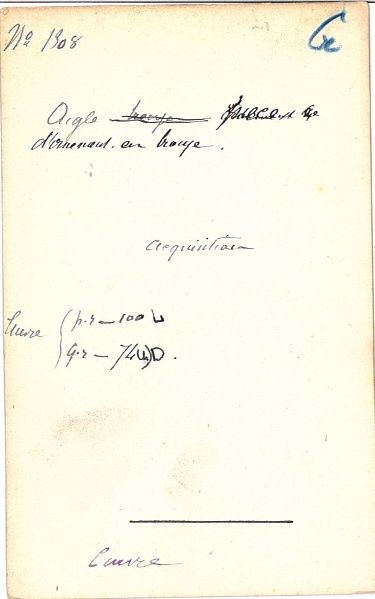 No 1308
Aigle bronze
d'ornement en bronze.
acquisition
Cuivre
p.r — 100 L
G.r — 74
Cuivre